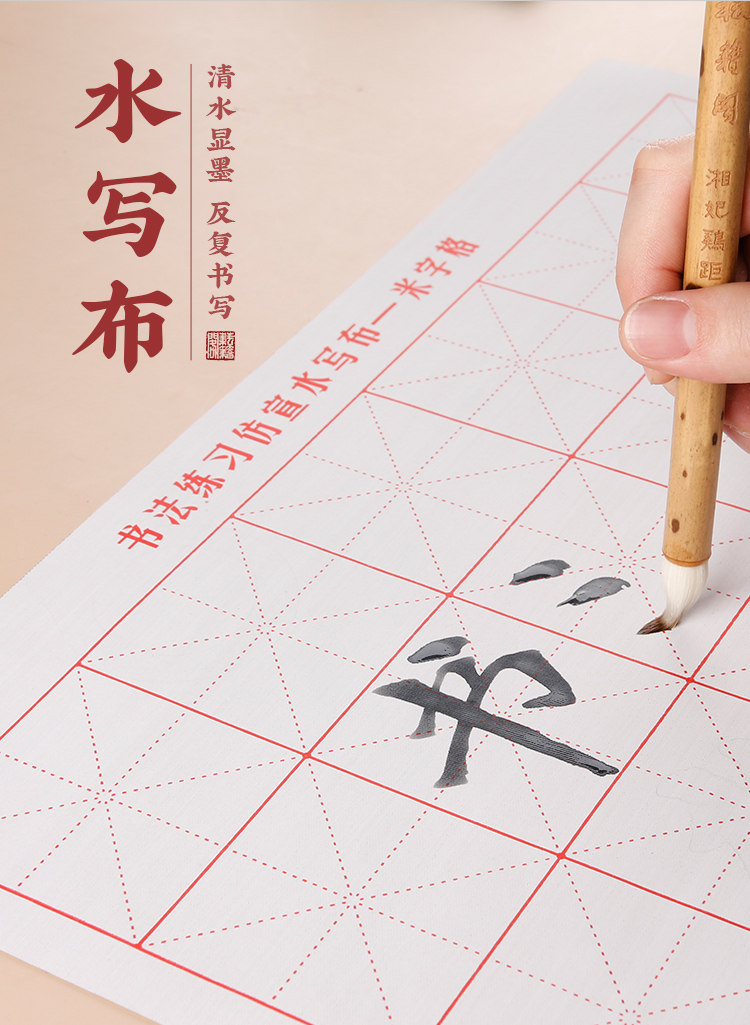 水写布
清水显墨 反复书写
书法练习仿宣水写布—米字格
书
湘妃鷄距